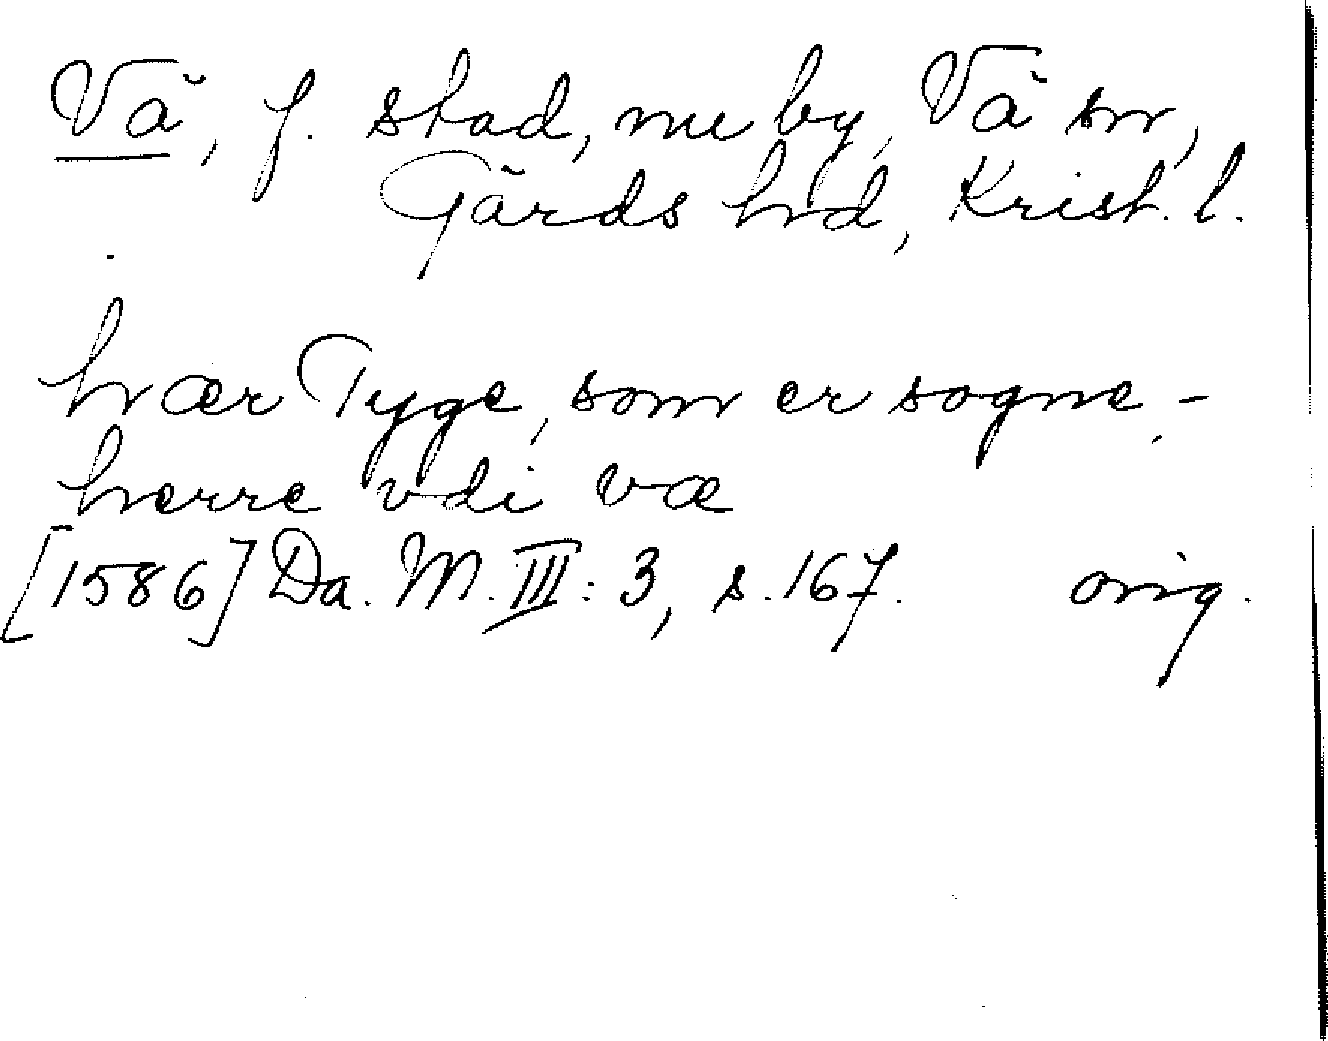 Vä, f. stad, nu by, Vä sn,
Gärds hd, Krist. l.
hær Tyge, som er sogne-
herre vdi væ
[1586] Da. M. III: 3, s. 167. orig.